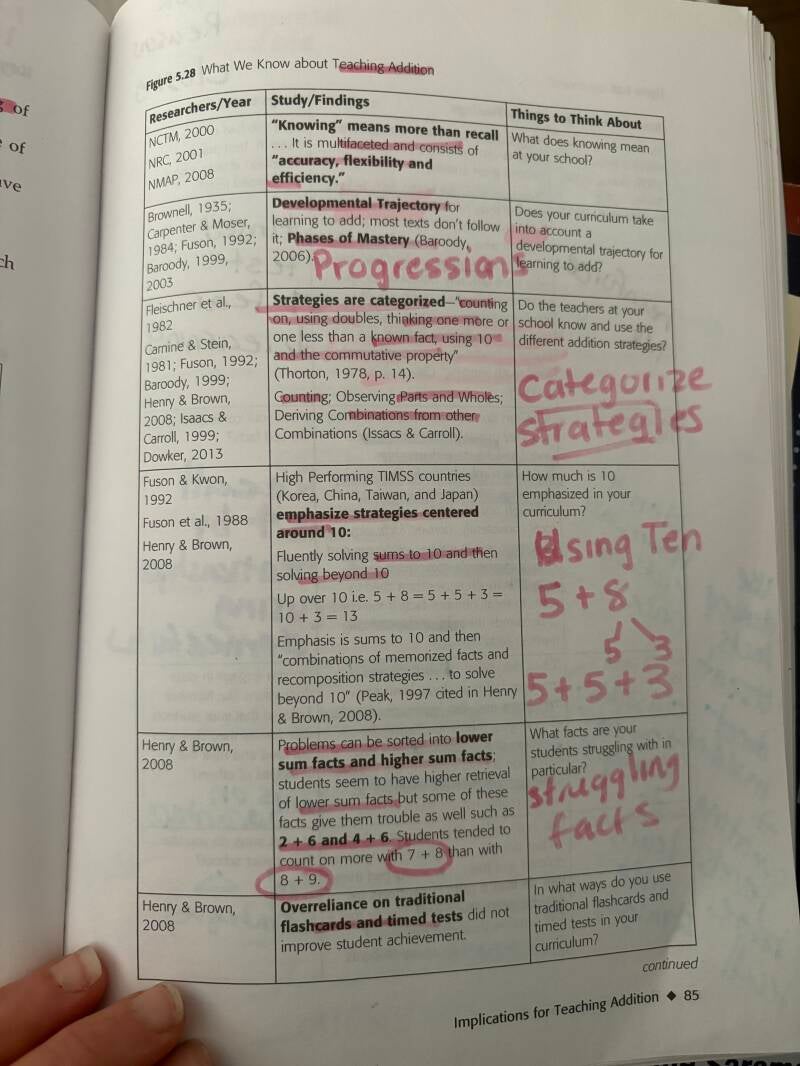 Figure 5.28 What We Know about Teaching Addition
Researchers/Year
Study/Findings
Things to Think About
NCTM, 2000
NRC, 2001
NMAP, 2008
“Knowing” means more than recall
. . . It is multifaceted and consists of
“accuracy, flexibility and
efficiency.”
What does knowing mean
at your school?
Brownell, 1935;
Carpenter & Moser,
1984; Fuson, 1992;
Baroody, 1999,
2003
Developmental Trajectory for
learning to add; most texts don’t follow
it; Phases of Mastery (Baroody,
2006).
Progressions
Does your curriculum take
into account a
developmental trajectory for
learning to add?
Fleischner et al.,
1982
Carnine & Stein,
1981; Fuson, 1992;
Baroody, 1999;
Henry & Brown,
2008; Isaacs &
Carroll, 1999;
Dowker, 2013
Strategies are categorized—“counting
on, using doubles, thinking one more or
one less than a known fact, using 10
and the commutative property”
(Thorton, 1978, p. 14).
Counting; Observing Parts and Wholes;
Deriving Combinations from other
Combinations (Issacs & Carroll).
Do the teachers at your
school know and use the
different addition strategies?
Categorize
strategies
Fuson & Kwon,
1992
Fuson et al., 1988
Henry & Brown,
2008
High Performing TIMSS countries
(Korea, China, Taiwan, and Japan)
emphasize strategies centered
around 10:
Fluently solving sums to 10 and then
solving beyond 10
Up over 10 i.e. 5 + 8 = 5 + 5 + 3 =
10 + 3 = 13
Emphasis is sums to 10 and then
“combinations of memorized facts and
recomposition strategies . . . to solve
beyond 10” (Peak, 1997 cited in Henry
& Brown, 2008).
How much is 10
emphasized in your
curriculum?
Using Ten
5 + 8
5 3
5 + 5 + 3
Henry & Brown,
2008
Problems can be sorted into lower
sum facts and higher sum facts;
students seem to have higher retrieval
of lower sum facts but some of these
facts give them trouble as well such as
2 + 6 and 4 + 6. Students tended to
count on more with 7 + 8 than with
8 + 9.
What facts are your
students struggling with in
particular?
struggling
facts
Henry & Brown,
2008
Overreliance on traditional
flashcards and timed tests did not
improve student achievement.
In what ways do you use
traditional flashcards and
timed tests in your
curriculum?
continued
Implications for Teaching Addition ◆ 85
of
of